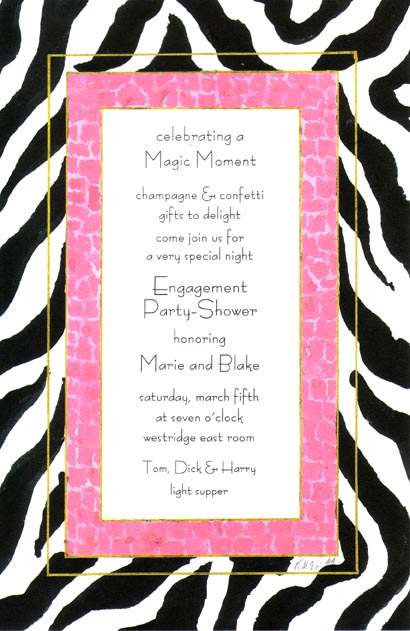 celebrating a
Magic Moment
champagne & confetti
gifts to delight
come join us for
a very special night
Engagement
Party-Shower
honoring
Marie and Blake
saturday, march fifth
at seven o'clock
westridge east room
Tom, Dick & Harry
light supper